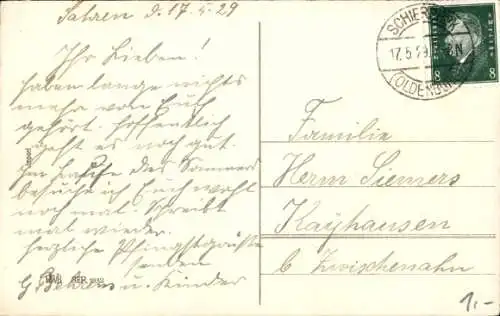 Sahren d. 17.5.29
Ihr Lieben!
haben lange nichts
mehr von Euch
gehört. hoffentlich
geht es noch gut.
Im Laufe des Sommers
besuche ich Euch wohl
noch mal. Schreibt
mal wieder.
herzliche Pfingstgrüße
senden
G. Behrens u. Kinder
SCHIERBROK
17.5.29 N
(OLDENBURG)
8 8
Familie
Herm Siemers
Kayhausen
b Zwischenahn
1.-
SER